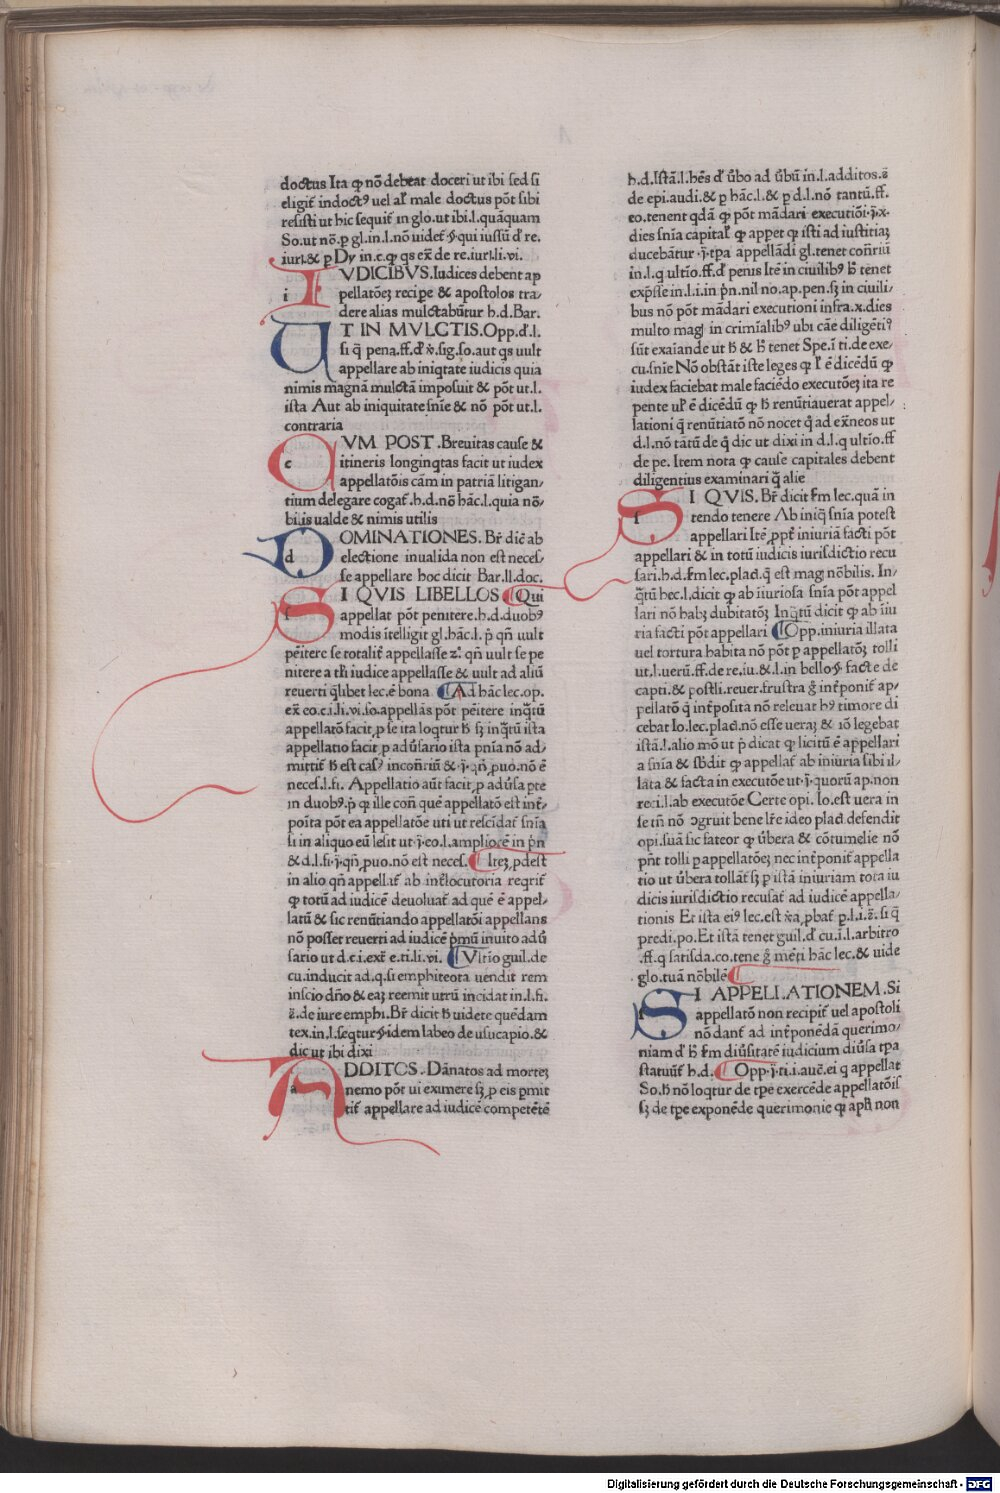 doctus Ita ꝙ nō debeat doceri ut ibi sed si
eligit᷑ indoctꝰ uel al᷑ male doctus pōt sibi
resisti ut hic sequit᷑ in glo.ut ibi.l.quāquam
So.ut nō.p gl.in.l.nō uidet᷑ .qui iussū d᷑ re.
iur.l.& p Dy in.c.ꝙ qs ex᷑ de re.iur.li.vi.
IVDICIBVS.Iudices debent ap
pellatōeꝫ recipe & apostolos tra/
dere alias mulctabūtur h.d.Bar.
UT IN MVLCTIS.Opp.d᷑.l.
si q̄ pena.ff.d᷑ ꝟ.sig.so.aut qs uult
appellare ab iniqtate iudicis quia
nimis magnā mulctā imposuit & pōt ut.l.
ista Aut ab iniquitate snīe & nō pōt ut.l.
contraria
CVM POST.Breuitas cause &
itineris longinqtas facit ut iudex
appellatōis cām in patriā litigan/
tium delegare cogat᷑.h.d.nō hāc.l.quia nō/
bilis ualde & nimis utilis
DOMINATIONES. Br᷑ dic̄ ab
electione inualida non est necess/
se appellare hoc dicit Bar.ll.doc.
SI QVIS LIBELLOS Qui
appellat pōt penitere.h.d.duobꝰ
modis ītelligit gl.hāc.l. p̄ qn̄ uult
pēitere se totalit᷑ appellasse zͦ.qn̄ uult se pe
nitere a tli iudice appellasse & uult ad aliū
reuerti q̄libet lec.ē bona Ad hāc lec.op.
ex᷑ eo.c.i.li.vi.so.appellās pōt pēitere inq̄tū
appellatō facit p se ita loqtur h̄ sꝫ inq̄tū ista
appellatio facit p adūsario ista pnīa nō ad/
mittit᷑ h̄ est casꝰ incon̄riū &.j.qn̄ puo.nō ē
neces.l.fi. Appellatio aūt facit p adūsa pte
in duobꝰ.p̄ ꝙ ille con̄ quē appellatō est int᷑/
poīta pōt ea appellatōe uti ut rescīdat᷑ snīa
si in aliquo eū lesit ut.j.eo.l.ampliorē in p̄n
& d.l.fi.j.qn̄ puo.nō est neces. Iteꝫ pdest
in alio qn̄ appellat᷑ ab int᷑locutoria reqrit᷑
ꝙ totū ad iudicē deuoluat᷑ ad quē ē appel/
latū & sic renūtiando appellatōi appellans
nō posset reuerti ad iudicē p̄mū inuito adū
sario ut d.c.i.ext᷑ e.ti.li.vi. Vltīo guil.de
cu.inducit ad.q.si emphiteota uendit rem
inscio dn̄o & eaꝫ reemit utrū incidat in.l.fi.
C̄.de iure emphi.Br᷑ dicit h̄ uidete quēdam
tex.in.l.seqtur .idem labeo de usucapio.&
dic ut ibi dixi
ADDITOS.Dānatos ad morteꝫ
nemo pōt ui eximere sꝫ p eis pmit
tit᷑ appellare ad iudicē competētē
h.d.Istā.l.hēs d᷑ ūbo ad ūbū in.l.additos.C̄
de epi.audi.& p hāc.l.& p d.l.nō tantū.ff.
eo.tenent qdā ꝙ pōt mādari executiōi.j.x.
dies snīa capital᷑ ꝙ appet ꝙ isti ad iustitiaꝫ
ducebātur.j.tpa appellādi gl.tenet con̄riū
in.l.q ultīo.ff.d᷑ penis Itē in ciuilibꝰ h̄ tenet
exp̄sse in.l.i.in p̄n.nil no.ap.pen.sꝫ in ciuili/
bus nō pōt mādari executioni infra.x.dies
multo magꝭ in crimīalibꝰ ubi cāe diligēti᷑
sūt exaīande ut h̄ & h̄ tenet Spe.ī ti.de exe/
cu.snīe Nō obstāt iste leges ꝙ l᷑ ē dicēdū ꝙ
iudex faciebat male faciēdo executōeꝫ ita re
pente ul᷑ ē dicēdū ꝙ h̄ renūtiauerat appel/
lationi q̄ renūtiatō nō nocet q̄ ad ex᷑neos ut
d.l.nō tātū de q̄ dic ut dixi in d.l.q ultīo.ff
de pe. Item nota ꝙ cause capitales debent
diligentius examinari q̄ alie
SI QVIS. Br᷑ dicit s᷑m lec.quā in
tendo tenere Ab iniq̄ snīa potest
appellari Itē ppt᷑ iniuriā facti pōt
appellari & in totū iudicis iurisdictio recu
sari.h.d.s᷑m lec.placī.q̄ est magꝭ nōbilis. In/
q̄tū hec.l.dicit ꝙ ab iiuriosa snīa pōt appel
lari nō habꝫ dubitatōꝫ Inq̄tū dicit ꝙ ab iiu
ria facti pōt appellari Opp.iniuria illata
uel tortura habita nō pōt p appellatōꝫ tolli
ut.l.uerū.ff.de re.iu.&.l.in bello. facte de
capti.& postli.reuer.frustra g᷑ int᷑ponit᷑ ap/
pellatō q̄ int᷑posita nō releuat hꝰ timore di
cebat Io.lec.placī.nō esse ueraꝫ & iō legebat
istā.l.alio mō ut p̄ dicat ꝙ licitū ē appellari
a snīa & sb̄dit ꝙ appellat᷑ ab iniuria sibi il/
lata & facta in executōe ut.j.quorū ap.non
reci.l.ab executōe Certe opi. Io.est uera in
se tn̄ nō ꝯgruit bene lr᷑e ideo placī defendit
opi.suā sic fateor ꝙ ūbera & cōtumelie nō
pn̄t tolli p appellatōeꝫ nec int᷑ponit᷑ appella
tio ut ūbera tollāt᷑ sꝫ p istā iniuriam tota iu
dicis iurisdictio recusat᷑ ad iudicē appella/
tionis Et ista eiꝰ lec.est ꝟa pbat᷑ p.l.i.C̄. si q̄
predi.po.Et istā tenet guil.d᷑ cu.ī.l.arbitro
.ff.q satisda.co.tene g᷑ mēti hāc lec.& uide
glo.tuā nōbilē
SI APPELLATIONEM.Si
appellatō non recipit᷑ uel apostoli
nō dant᷑ ad int᷑ponēdā querimo/
niam d᷑ h̄ s᷑m diūsitatē iudicium diūsa tpa
statuūt᷑ h.d. Opp.j.ti.i.aucē.ei q appellat
So.h̄ nō loqtur de tpe exercēde appellatōis
sꝫ de tpe exponēde querimonie ꝙ apl̄i non
Digitalisierung gefördert durch die Deutsche Forschungsgemeinschaft - DFG